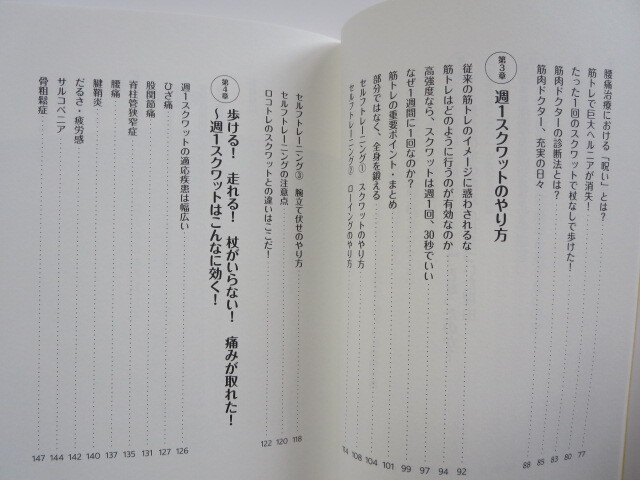 腰痛治療における「呪い」とは? 77
筋トレで巨大ヘルニアが消失! 80
たった1回のスクワットで杖なしで歩けた! 83
筋肉ドクターの診断法とは? 85
筋肉ドクター、充実の日々 88
第3章 週1スクワットのやり方
従来の筋トレのイメージに惑わされるな 92
筋トレはどのように行うのが有効なのか 94
高強度なら、スクワットは週1回、30秒でいい 97
なぜ1週間に1回なのか? 99
筋トレの重要ポイント・まとめ 101
部分ではなく、全身を鍛える 104
セルフトレーニング① スクワットのやり方 108
セルフトレーニング② ローイングのやり方 114
セルフトレーニング③ 腕立て伏せのやり方 118
セルフトレーニングの注意点 120
ロコトレのスクワットとの違いはここだ! 122
第4章 歩ける! 走れる! 杖がいらない! 痛みが取れた!
〜週1スクワットはこんなに効く!
週1スクワットの適応疾患は幅広い 126
ひざ痛 127
股関節痛 131
脊柱管狭窄症 135
腰痛 137
腱鞘炎 140
だるさ・疲労感 142
サルコペニア 144
骨粗鬆症 147